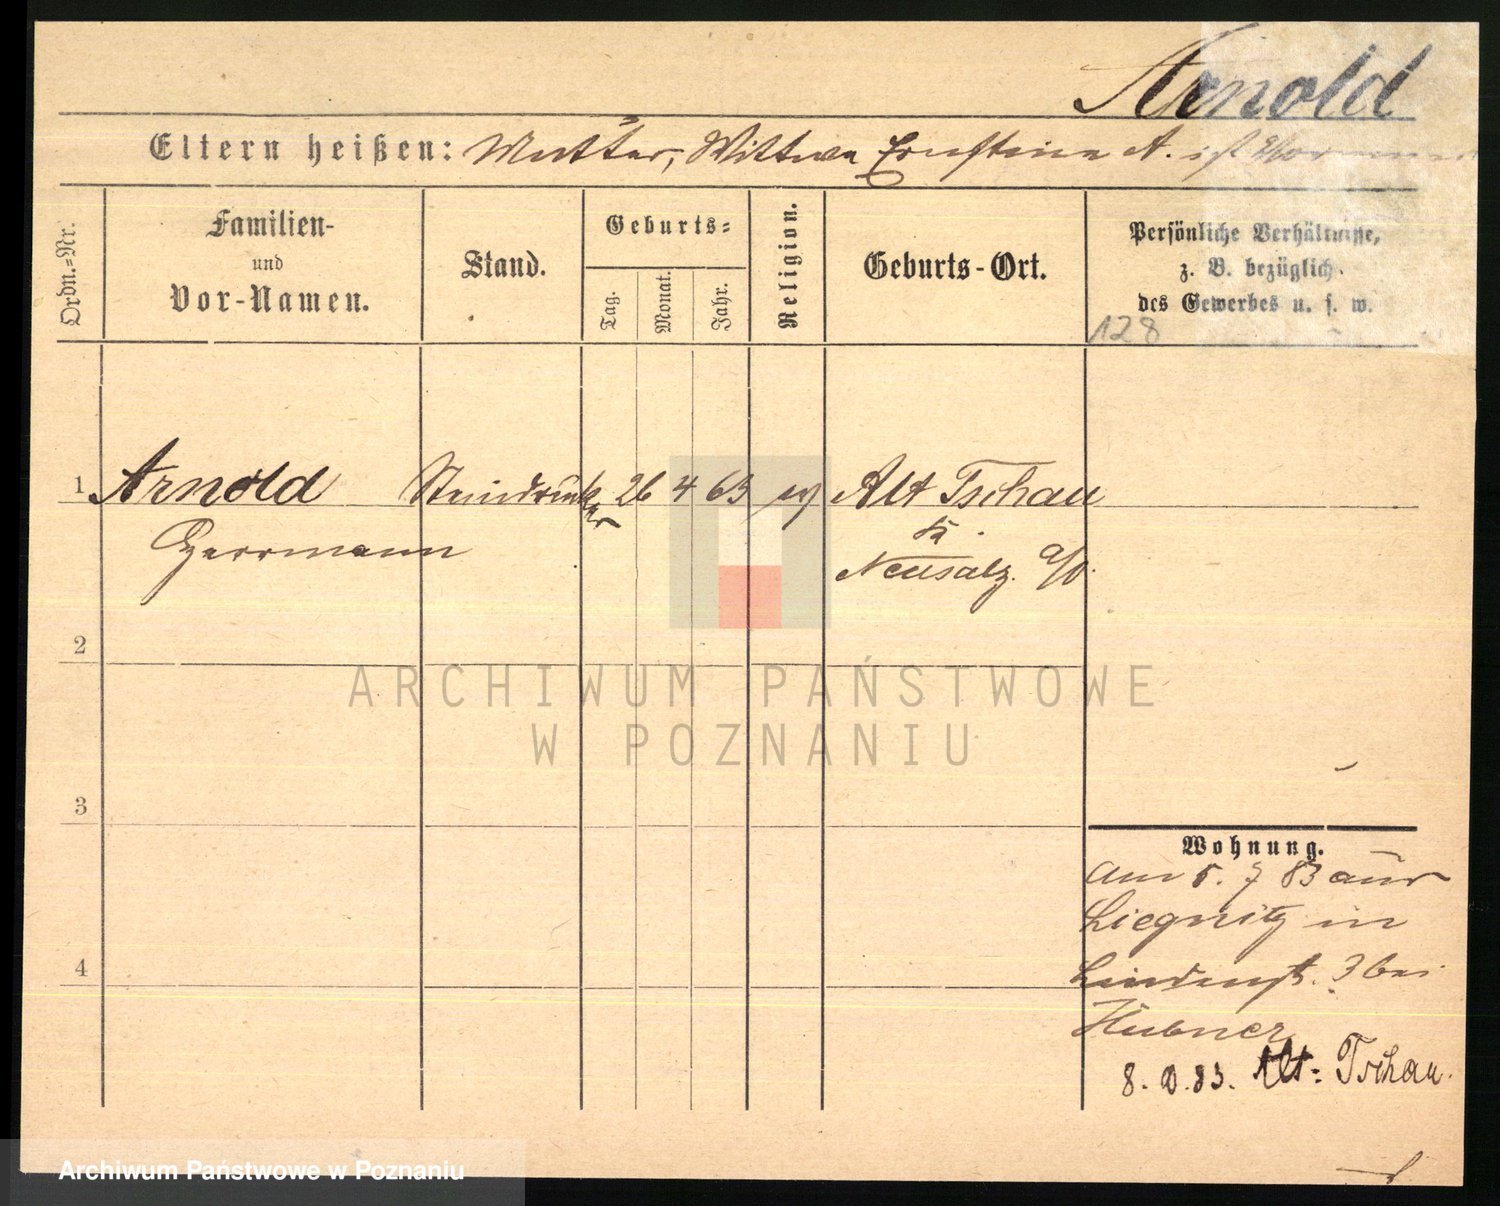 Arnold
Eltern heißen: Mutter, Wittwe Ernstine A. ist
Ordn.-Nr.
Familien-
und
Vor-Namen.
Stand.
Geburts-
Tag.
Monat.
Jahr.
Religion.
Geburts-Ort.
Persönliche Verhältnisse,
z. B. bezüglich
des Gewerbes u. s. w.
128
1 Arnold Steindrucker 26 4 63 ev Alt Tschau
Herrmann
Neusalz a/O.
2
3
4
Wohnung.
am 5. 7 83 aus
Liegnitz in
Lindenst. 3 bei
Hübner
8. 83. Alt-Tschau.
ARCHIWUM PAŃSTWOWE
W POZNANIU
Archiwum Państwowe w Poznaniu